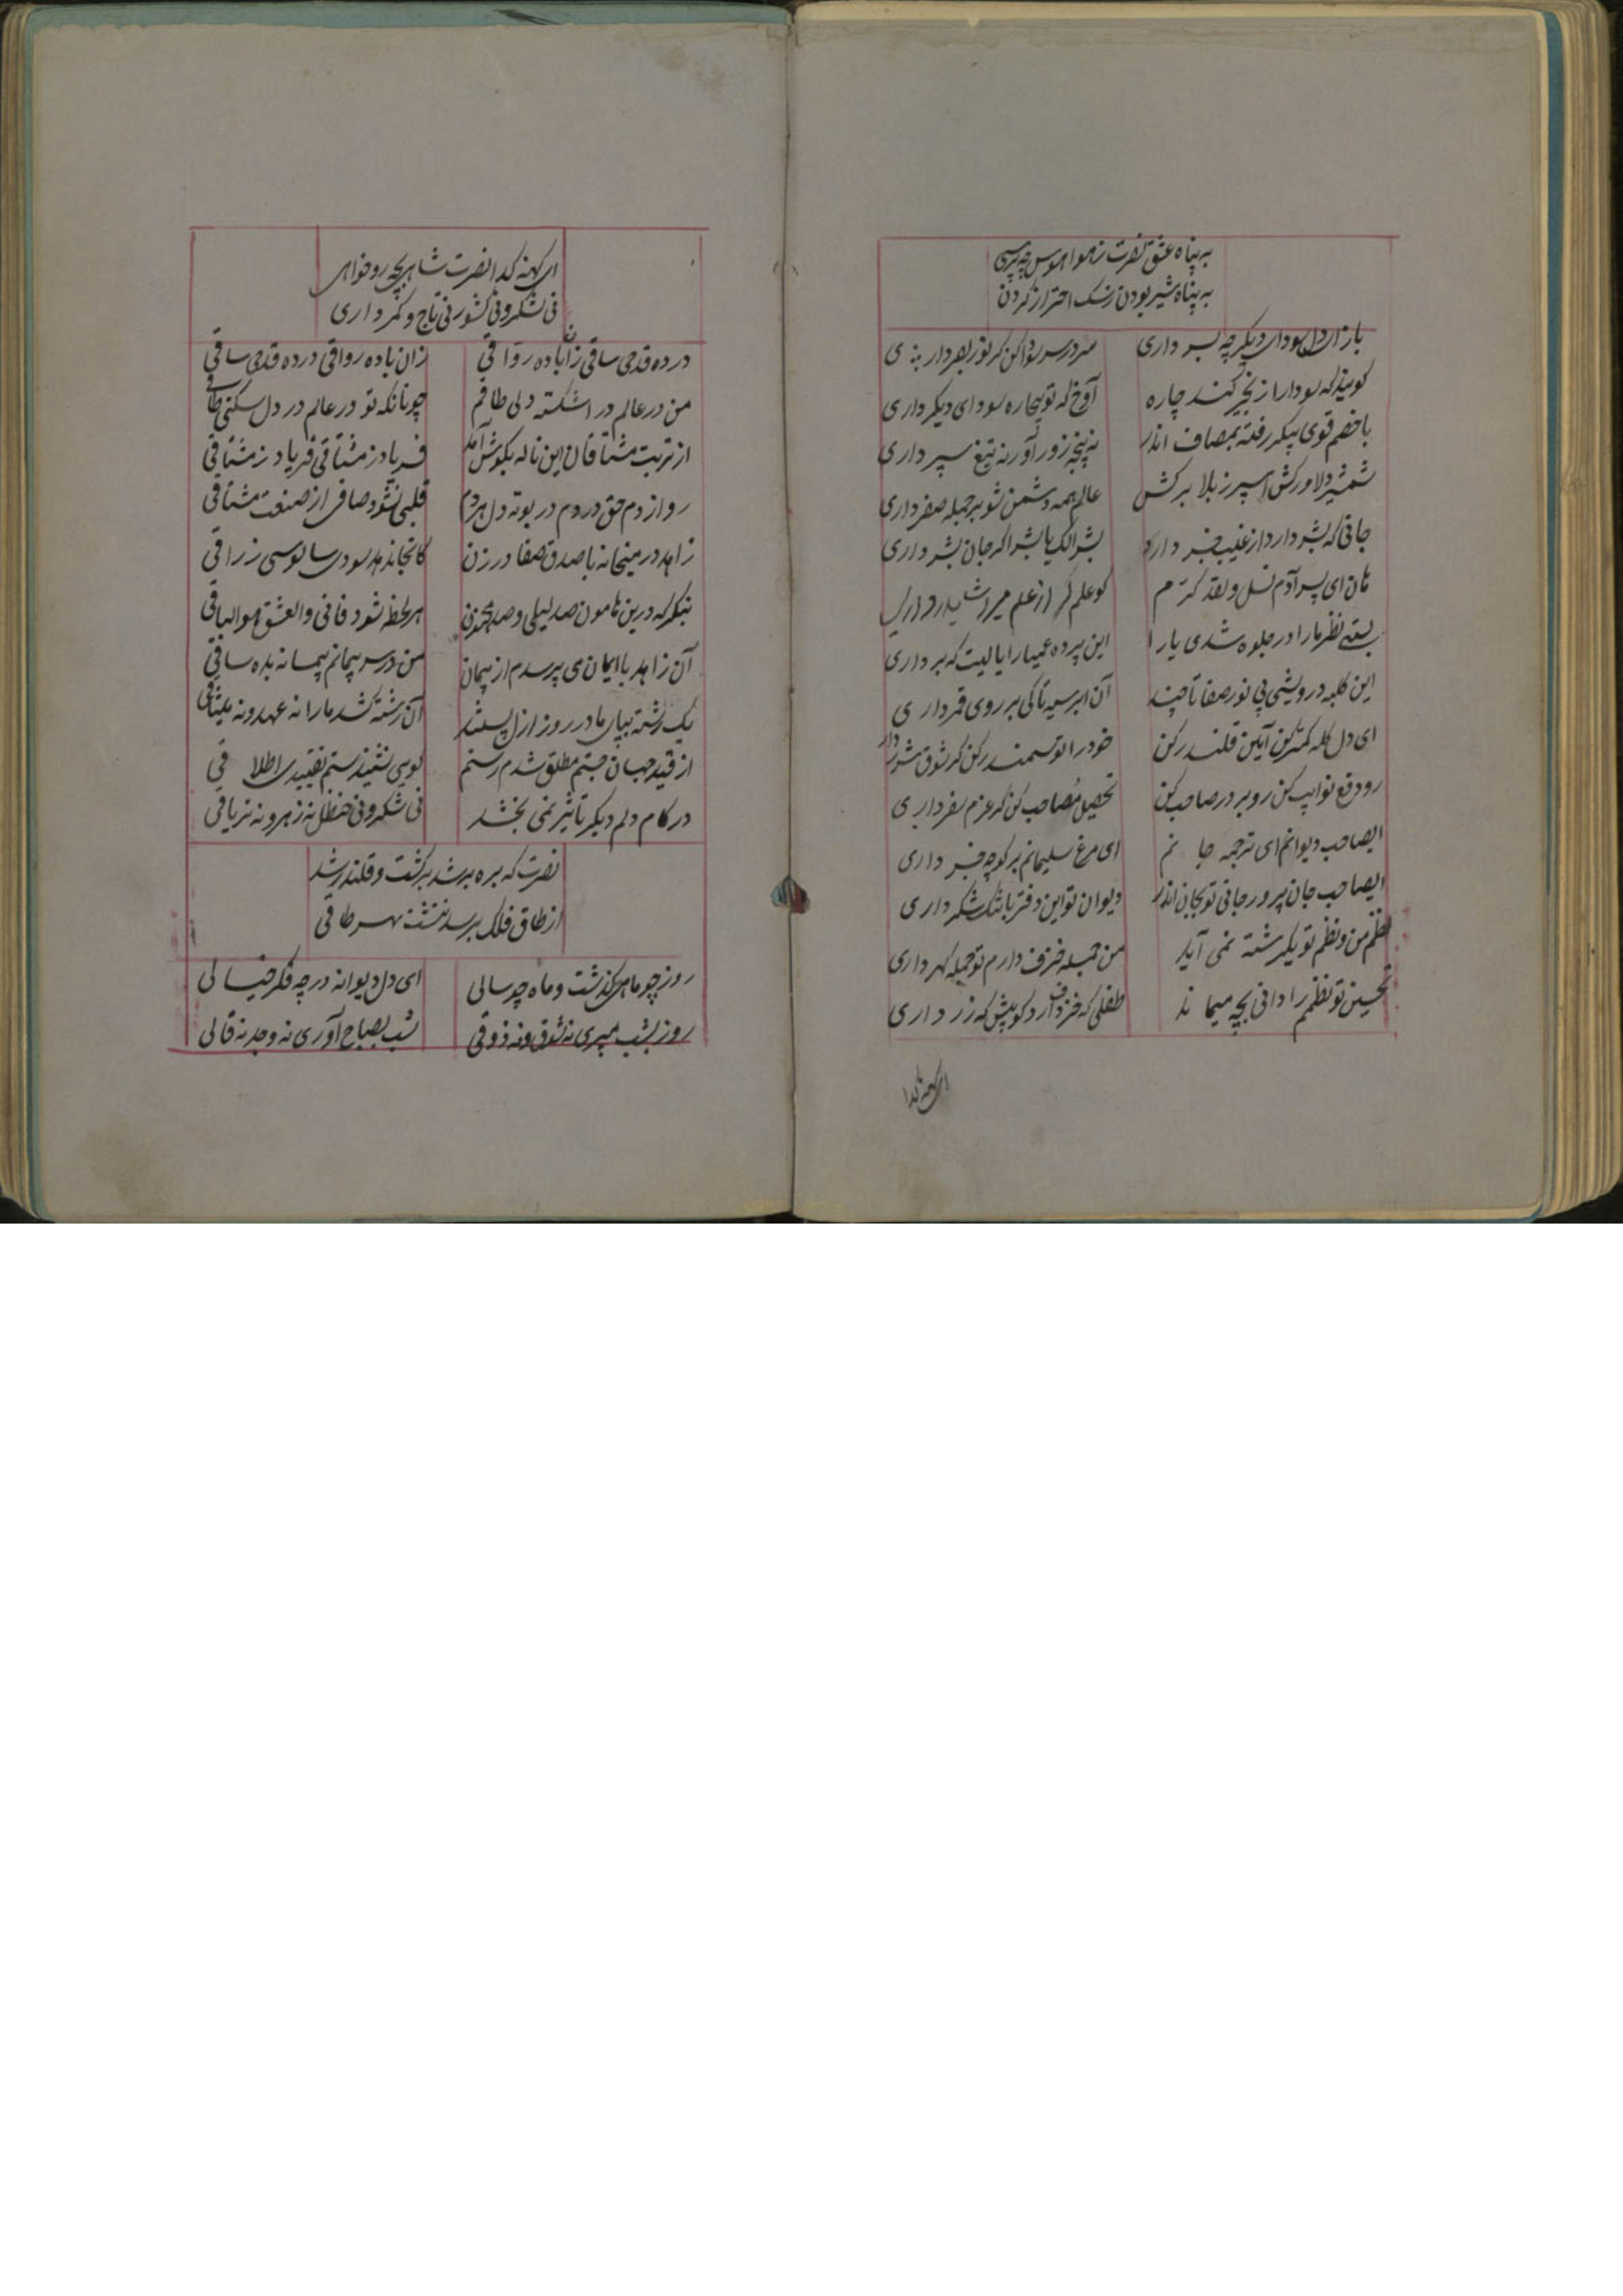 به پناه عشق نصرت ز هوا هوس چه پرسی
به پناه شیر بودن ز سک احتراز کردن
باز ای دل سودای دیکر چه بسر داری
سر در سر سودا کن کر نور بصر داری
کویند که سودا را زنجیر کند چاره
آوخ که تو بیچاره سودای دیکر داری
با خصم قوی پیکر رفته بمصاف اندر
نه پنجه زور آور نه تیغ سپر داری
شمشیر دلاور کش سپر ز بلا برکش
عالم همه دشمن شو بر جمله ظفر داری
جانی که بشر دارد از غیب خبر دارد
بشرا لک یا بشرا کر جان بشر داری
هان ای پسر آدم نسل ولقد کرم
کو علم کر از علم میراث پدر داری
بستی نظر ما را در جلوه شدی یارا
این پرده عمیا را یا لیت که برداری
این کلبه درویشی بی نور صفا تا چند
آن ابر سیه تا کی بر روی قمر داری
ای دل کله کمتر کن آیین قلندر کن
خود را تو سمندر کن کر شوق شرر داری
رو دفع نوایب کن رو بر در صاحب کن
تحصیل مصاحب کن کر عزم سفر داری
ایصاحب دیوانم ای ترجمه جانم
ای مرغ سلیمانم بر کو چه خبر داری
ایصاحب جان پرور جانی تو بجان اندر
دیوان تو این دفتر یا تنک شکر داری
نظم من و نظم تو یکرشته نمی آید
من جمله خزف دارم تو جمله کهر داری
تحسین تو نظمم را دانی بچه میماند
طفلی که خزف دارد کو پیش که زر داری
ای کهنه کدا
ای کهنه کدا نصرت شاهی بچه رو خواهی
نی لشکر و نی کشور نی تاج و کمر داری
در ده قدحی ساقی زان باده رواقی
زان باده رواقی در ده قدحی ساقی
من در عالم در اشکسته دلی طاقم
چونانکه تو در عالم در دل شکنی طاقی
از تربت مشتاقان این ناله بکوش آمد
فریاد ز مشتاقی فریاد ز مشتاقی
رو از دم حق در دم در بوته دل هر دم
قلبی نشود صافی از صنعت مشاقی
زاهد در میخانه با صدق و صفا در زن
کانجا ندهد سودی سالوسی زراقی
بنکر که درین هامون صد لیلی و صد مجنون
هر لحظه شود فانی والعشق هو الباقی
آن زاهد با ایمان می پرسدم از پیمان
من در سر پیمانم پیمانه بده ساقی
یک رشته بپای ما در روز ازل بستند
آن رشته کشد ما را نه عهد و نه میثاقی
از قید جهان جستم مطلق شدم رستم
در کام دلم دیکر تاثیر نمی بخشد
نی شکر و نی حنظل نه زهر و نه تریاقی
نصرت که بره بر شد برکشت و قلندر شد
از طاق فلک برسد ننشت بهر طاقی
روز چو ماهی کذشت و ماه چو سالی
ای دل دیوانه در چه فکر خیالی
روز بشب میبری نه شوق و نه ذوقی
شب بصباح آوری نه وجد نه قالی